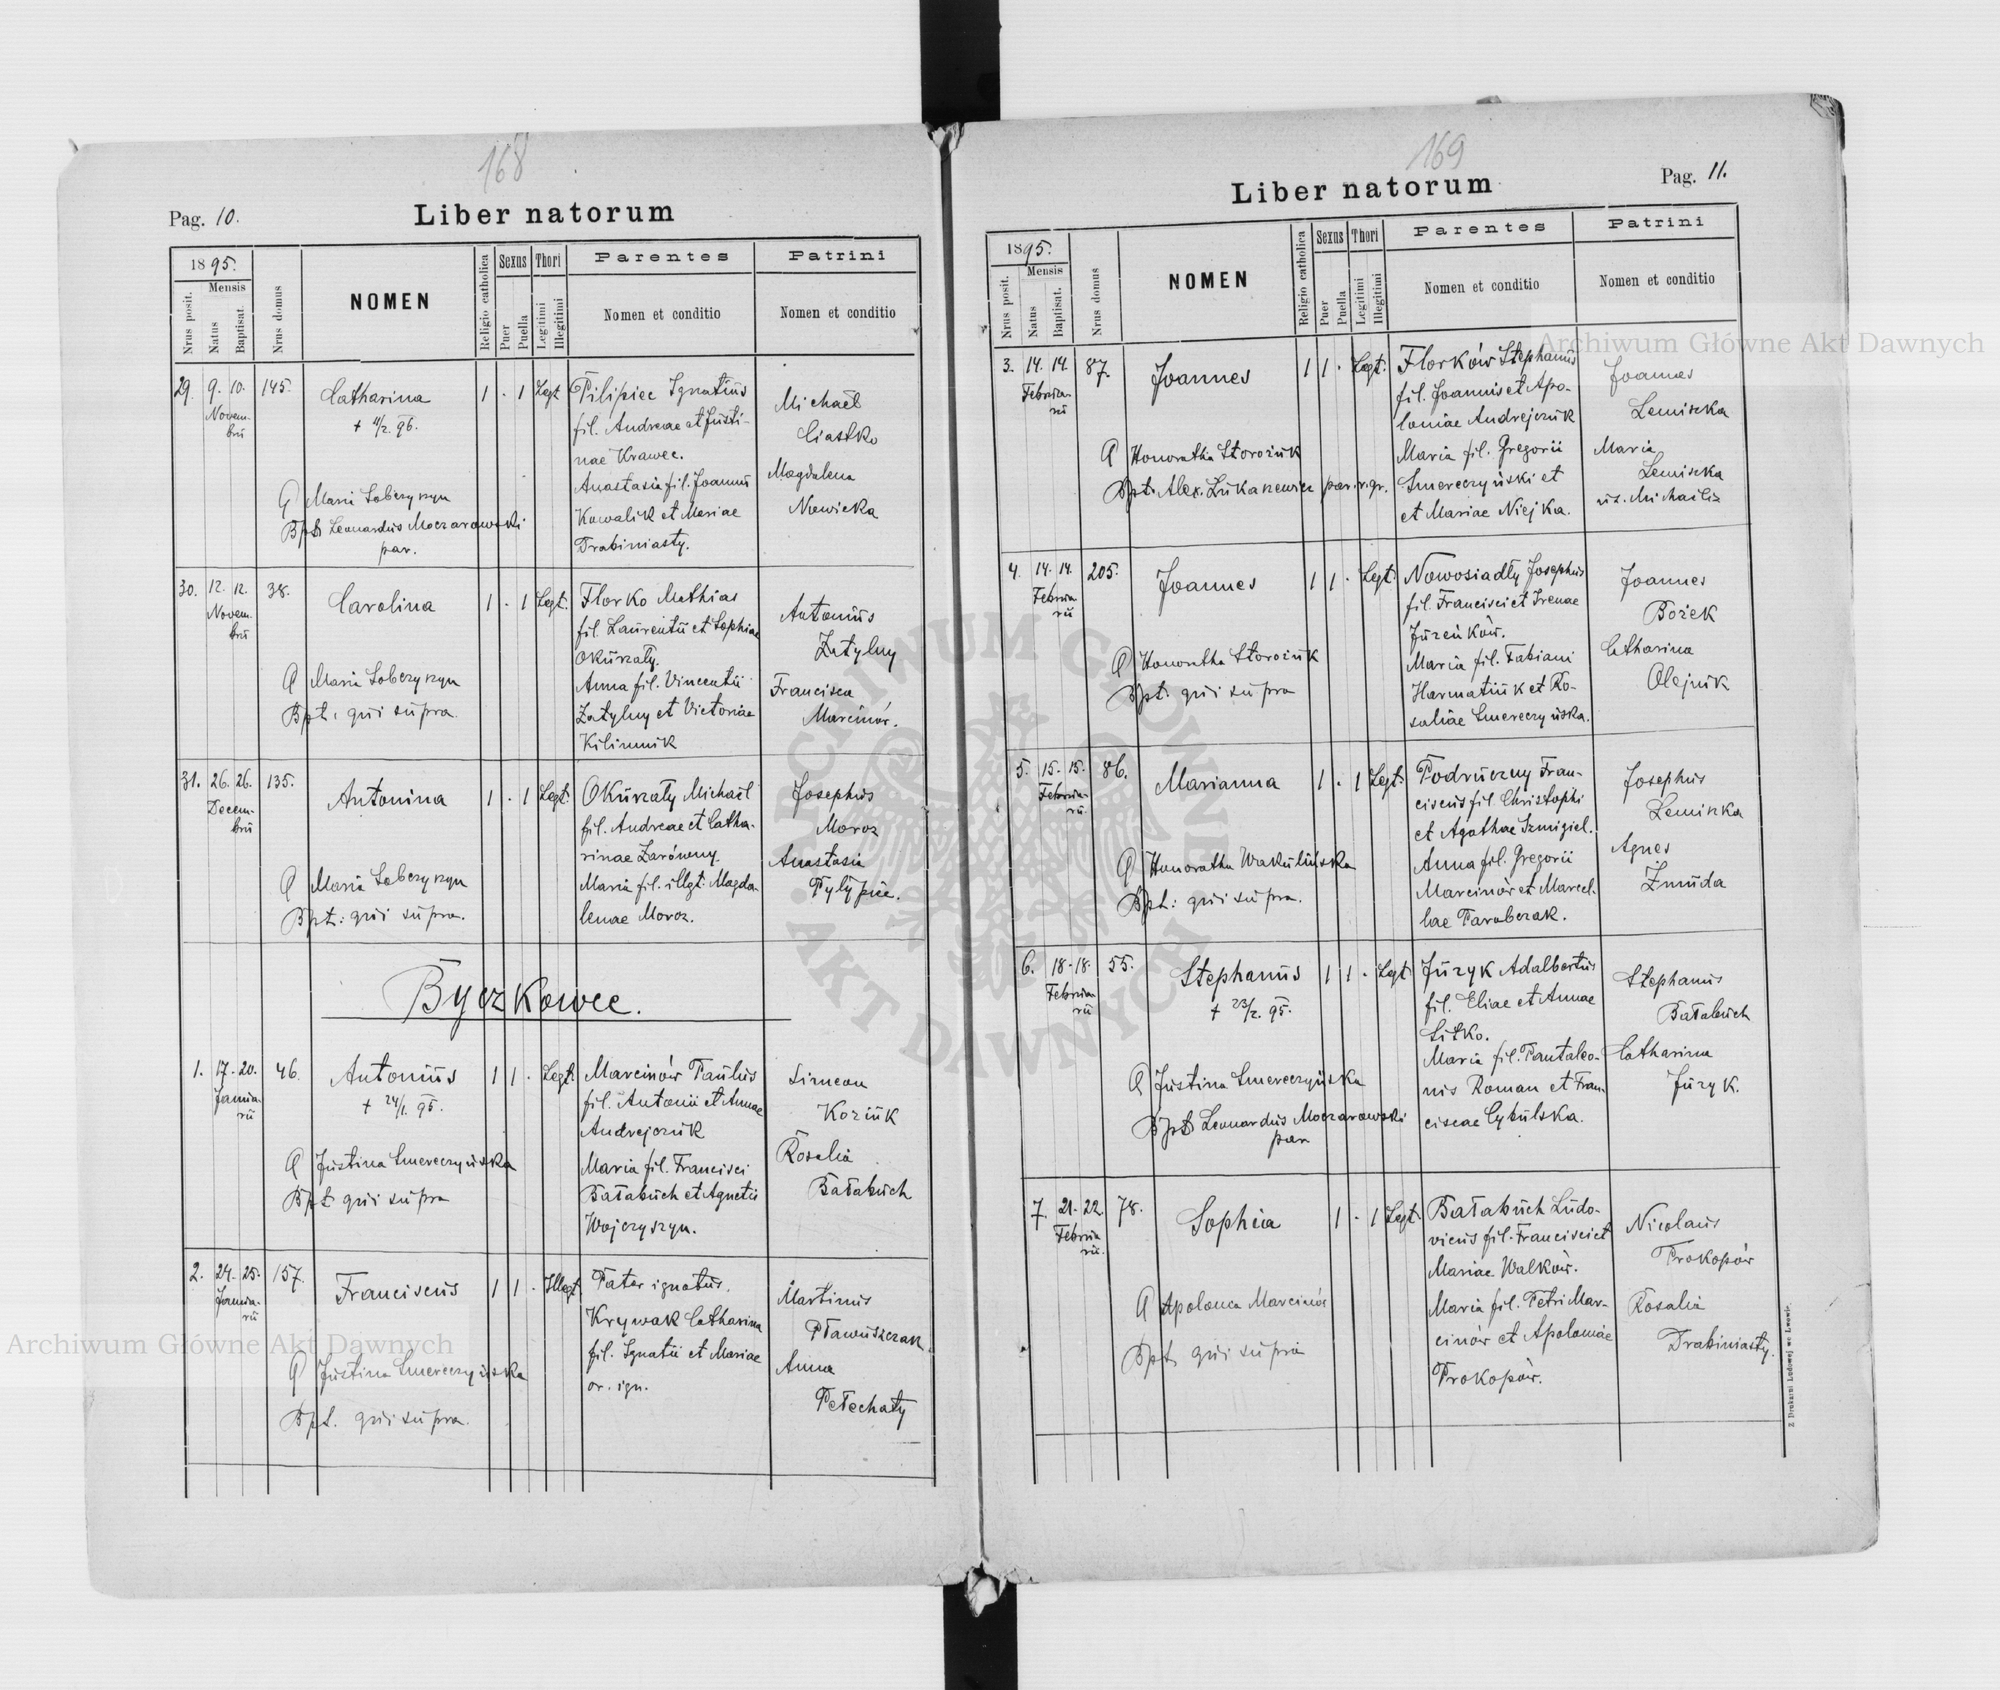 168
Pag. 10.
Liber natorum
1895.
Mensis
Nrus posit.
Natus
Baptisat.
Nrus domus
NOMEN
Religio catholica
Sexus
Puer
Puella
Thori
Legitimi
Illegitimi
Parentes
Nomen et conditio
Patrini
Nomen et conditio
29. 9. 10. 145. Catharina 1 . 1 Legt.
Novem-
bris
Pilipiec Ignatius
fil. Andreae et Justi-
nae Krawec.
Anastasia fil. Joannis
Kowalik et Mariae
Drabiniasty.
Michaël
Ciastko
Magdalena
Nowicka
Bpt. Leonardus Moczarowski
par.
30. 12. 12. 38. Carolina 1 . 1 Legt.
Novem-
bris
Florko Mathias
fil. Laurentii et Sophiae
Okürzaty.
Anna fil. Vincentii
Zatylny et Victoriae
Kilimnik
Antonius
Zatylny
Francisca
Marcinów.
Bpt. qui supra.
31. 26. 26. 135. Antonina 1 . 1 Legt.
Decem-
bris
Okürzaty Michaël
fil. Andreae et Catha-
rinae Zarówny.
Maria fil. illgt. Magda-
lenae Moroz.
Josephus
Moroz
Anastasia
Pylypiec.
Bpt: qui supra.
Byczkowce.
1. 17. 20. 46. Antonius 1 1 . Legt.
Janua-
rii
+ 24/1. 95.
Marcinów Paulus
fil. Antonii et Annae
Andrejczuk
Maria fil. Francisci
Bałabuch et Agnetis
Wojczyszyn.
Simeon
Koziuk
Rosalia
Bałabuch
Justina Smereczyńska
Bpt. qui supra
2. 24. 25. 157. Franciscus 1 1 . Illegt.
Janua-
rii
Pater ignotus.
Krywak Catharina
fil. Ignatii et Mariae
or. ign.
Martinus
Pławuszczak
Anna
Pełechaty
Justina Smereczyńska
Bpt. qui supra.
169
Liber natorum
Pag. 11.
1895.
Mensis
Nrus posit.
Natus
Baptisat.
Nrus domus
NOMEN
Religio catholica
Sexus
Puer
Puella
Thori
Legitimi
Illegitimi
Parentes
Nomen et conditio
Patrini
Nomen et conditio
3. 14. 14. 87. Joannes 1 1 . Legt.
Februa-
rii
Florków Stephanus
fil. Joannis et Apo-
loniae Andrejczuk
Maria fil. Gregorii
Smereczyński et
et Mariae Niejka.
Joannes
Lemiszka
Maria
Lemiszka
ux. Michaëlis
Honoratha Storożuk
Bpt. Alex. Łukasiewicz par. r. gr.
4. 14. 14. 205. Joannes 1 1 . Legt.
Februa-
rii
Nowosiadły Josephus
fil. Francisci et Irenae
Jureńków.
Maria fil. Fabiani
Harmatiuk et Ro-
saliae Smereczyńska.
Joannes
Bożek
Catharina
Olejnik
Honoratha Storożuk
Bpt. qui supra
5. 15. 15. 86. Marianna 1 . 1 Legt.
Februa-
rii
Podruczny Fran-
ciscus fil. Christophi
et Agathae Szmigiel.
Anna fil. Gregorii
Marcinów et Marcel-
lae Parobczak.
Josephus
Lemiszka
Agnes
Żmuda
Honoratha Wakulińska
Bpt: qui supra.
6. 18. 18. 55. Stephanus 1 1 . Legt.
Februa-
rii
+ 23/2. 95.
Juzyk Adalbertus
fil. Eliae et Annae
Sitko.
Maria fil. Pantaleo-
nis Roman et Fran-
ciscae Cybulska.
Stephanus
Bałabuch
Catharina
Juzyk.
Justina Smereczyńska
Bpt. Leonardus Moczarowski
par
7. 21. 22. 78. Sophia 1 . 1 Legt.
Februa-
rii.
Bałabuch Ludo-
vicus fil. Francisci et
Mariae Walków.
Maria fil. Petri Mar-
cinów et Apoloniae
Prokopów.
Nicolaus
Prokopów
Rosalia
Drabiniasty.
Apolonia Marcinów
Bpt. qui supra
Z Drukarni Ludowej we Lwowie.
Archiwum Główne Akt Dawnych
Archiwum Główne Akt Dawnych
ARCHIWUM GŁÓWNE
AKT DAWNYCH